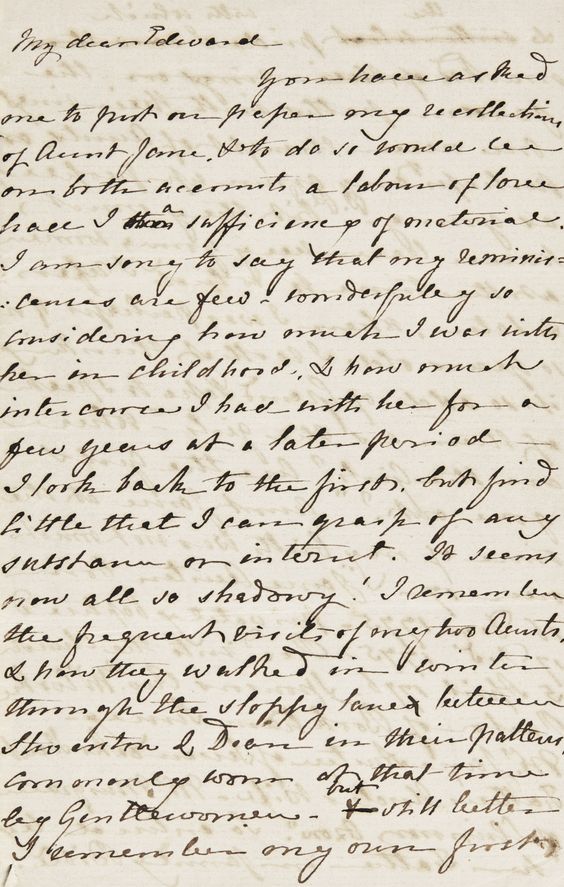 My dear Edward
You have asked
me to put on paper my recollections
of Aunt Jane, & to do so would be
on both accounts a labour of love
had I a sufficiency of material.
I am sorry to say that my reminis-
:cences are few - wonderfully so
considering how much I was with
her in childhood, & how much
intercourse I had with her for a
few years at a later period —
I look back to the first, but find
little that I can grasp of any
substance or interest. It seems
now all so shadowy! I remember
the frequent visits of my two Aunts,
& how they walked in winter
through the sloppy lane between
Steventon & Dean in their pattens,
commonly worn at that time
by Gentlewomen - but still better
I remember my own first